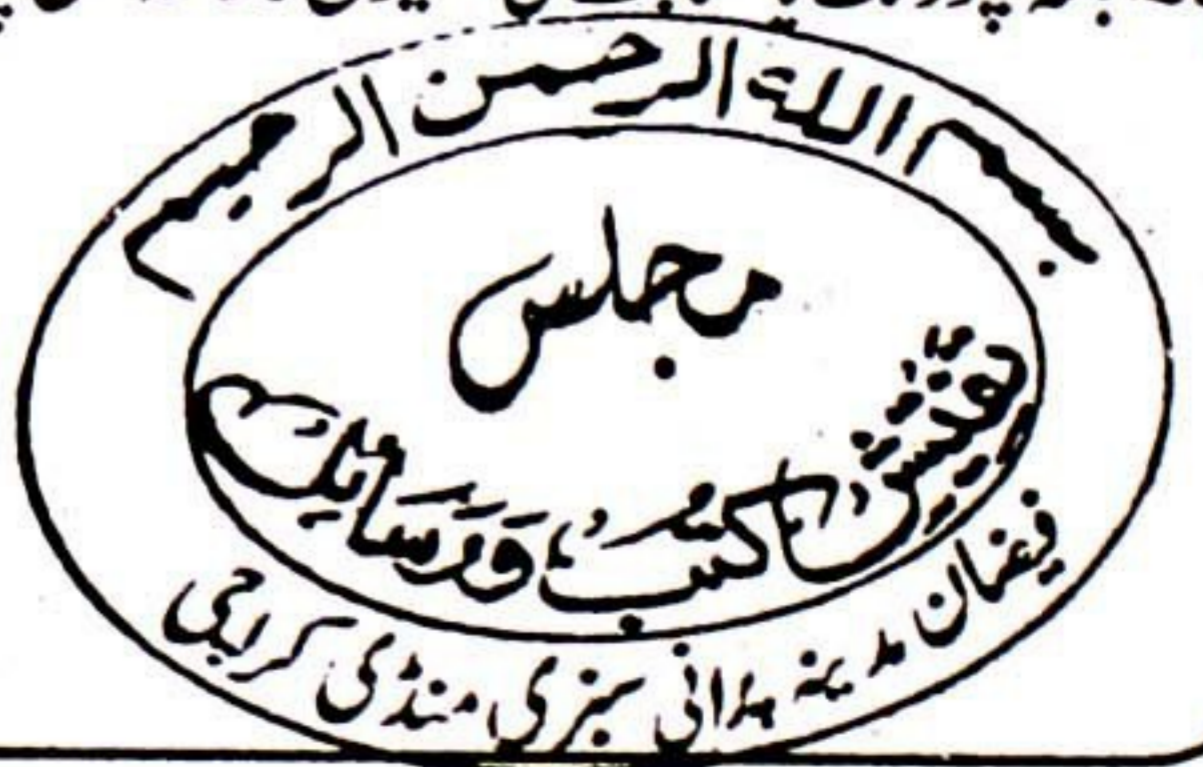 بسم اللہ الرحمن الرحیم
مجلس
تفتیش کتب و رسائل
فیضان مدینہ پرانی سبزی منڈی کراچی